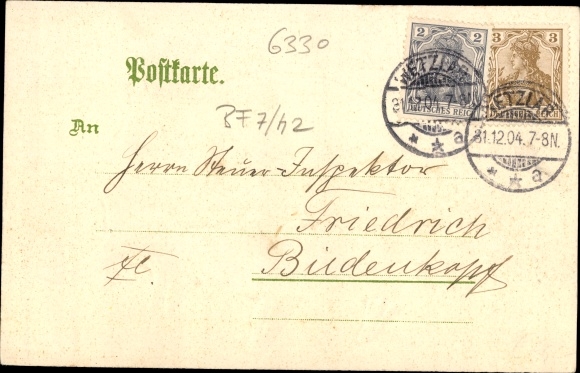 6330
2
3
Postkarte.
DEUTSCHES REICH
WETZLAR
31.12.04.7-8N.
* * a
WETZLAR
31.12.04.7-8N.
* * a
BF7/h2
An
Herrn Steuer-Inspektor
Friedrich
Biedenkopf